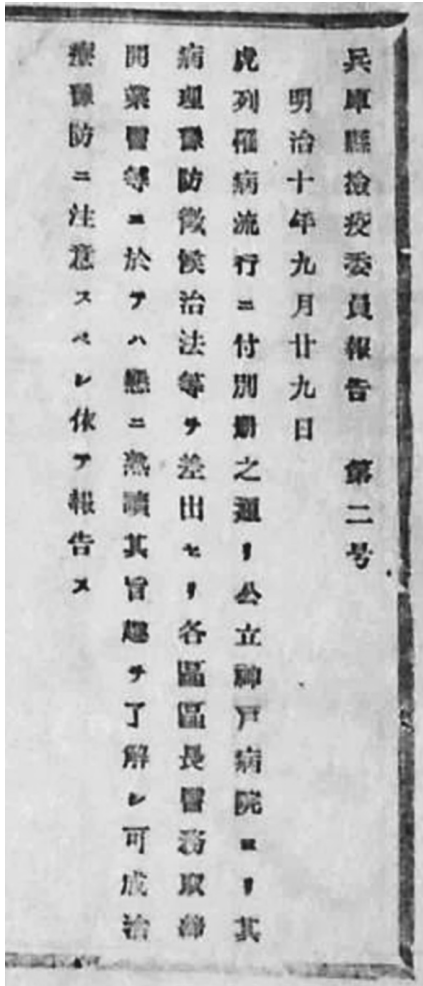 兵庫縣撿疫委員報告　第二号
明治十年九月廿九日
虎列羅病流行ニ付別册之通リ公立神戸病院ヨリ其
病理豫防徴候治法等ヲ差出セリ各區區長醫務取締
開業醫等ニ於テハ懇ニ熟讀其旨趣ヲ了解シ可成治
療豫防ニ注意スベシ依テ報告ス